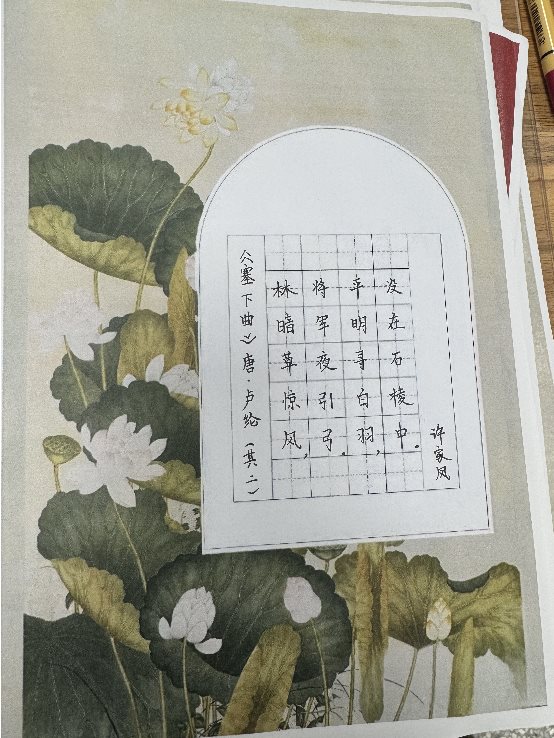 《塞下曲》唐·卢纶（其二）
林暗草惊风，
将军夜引弓。
平明寻白羽，
没在石棱中。
许家凤